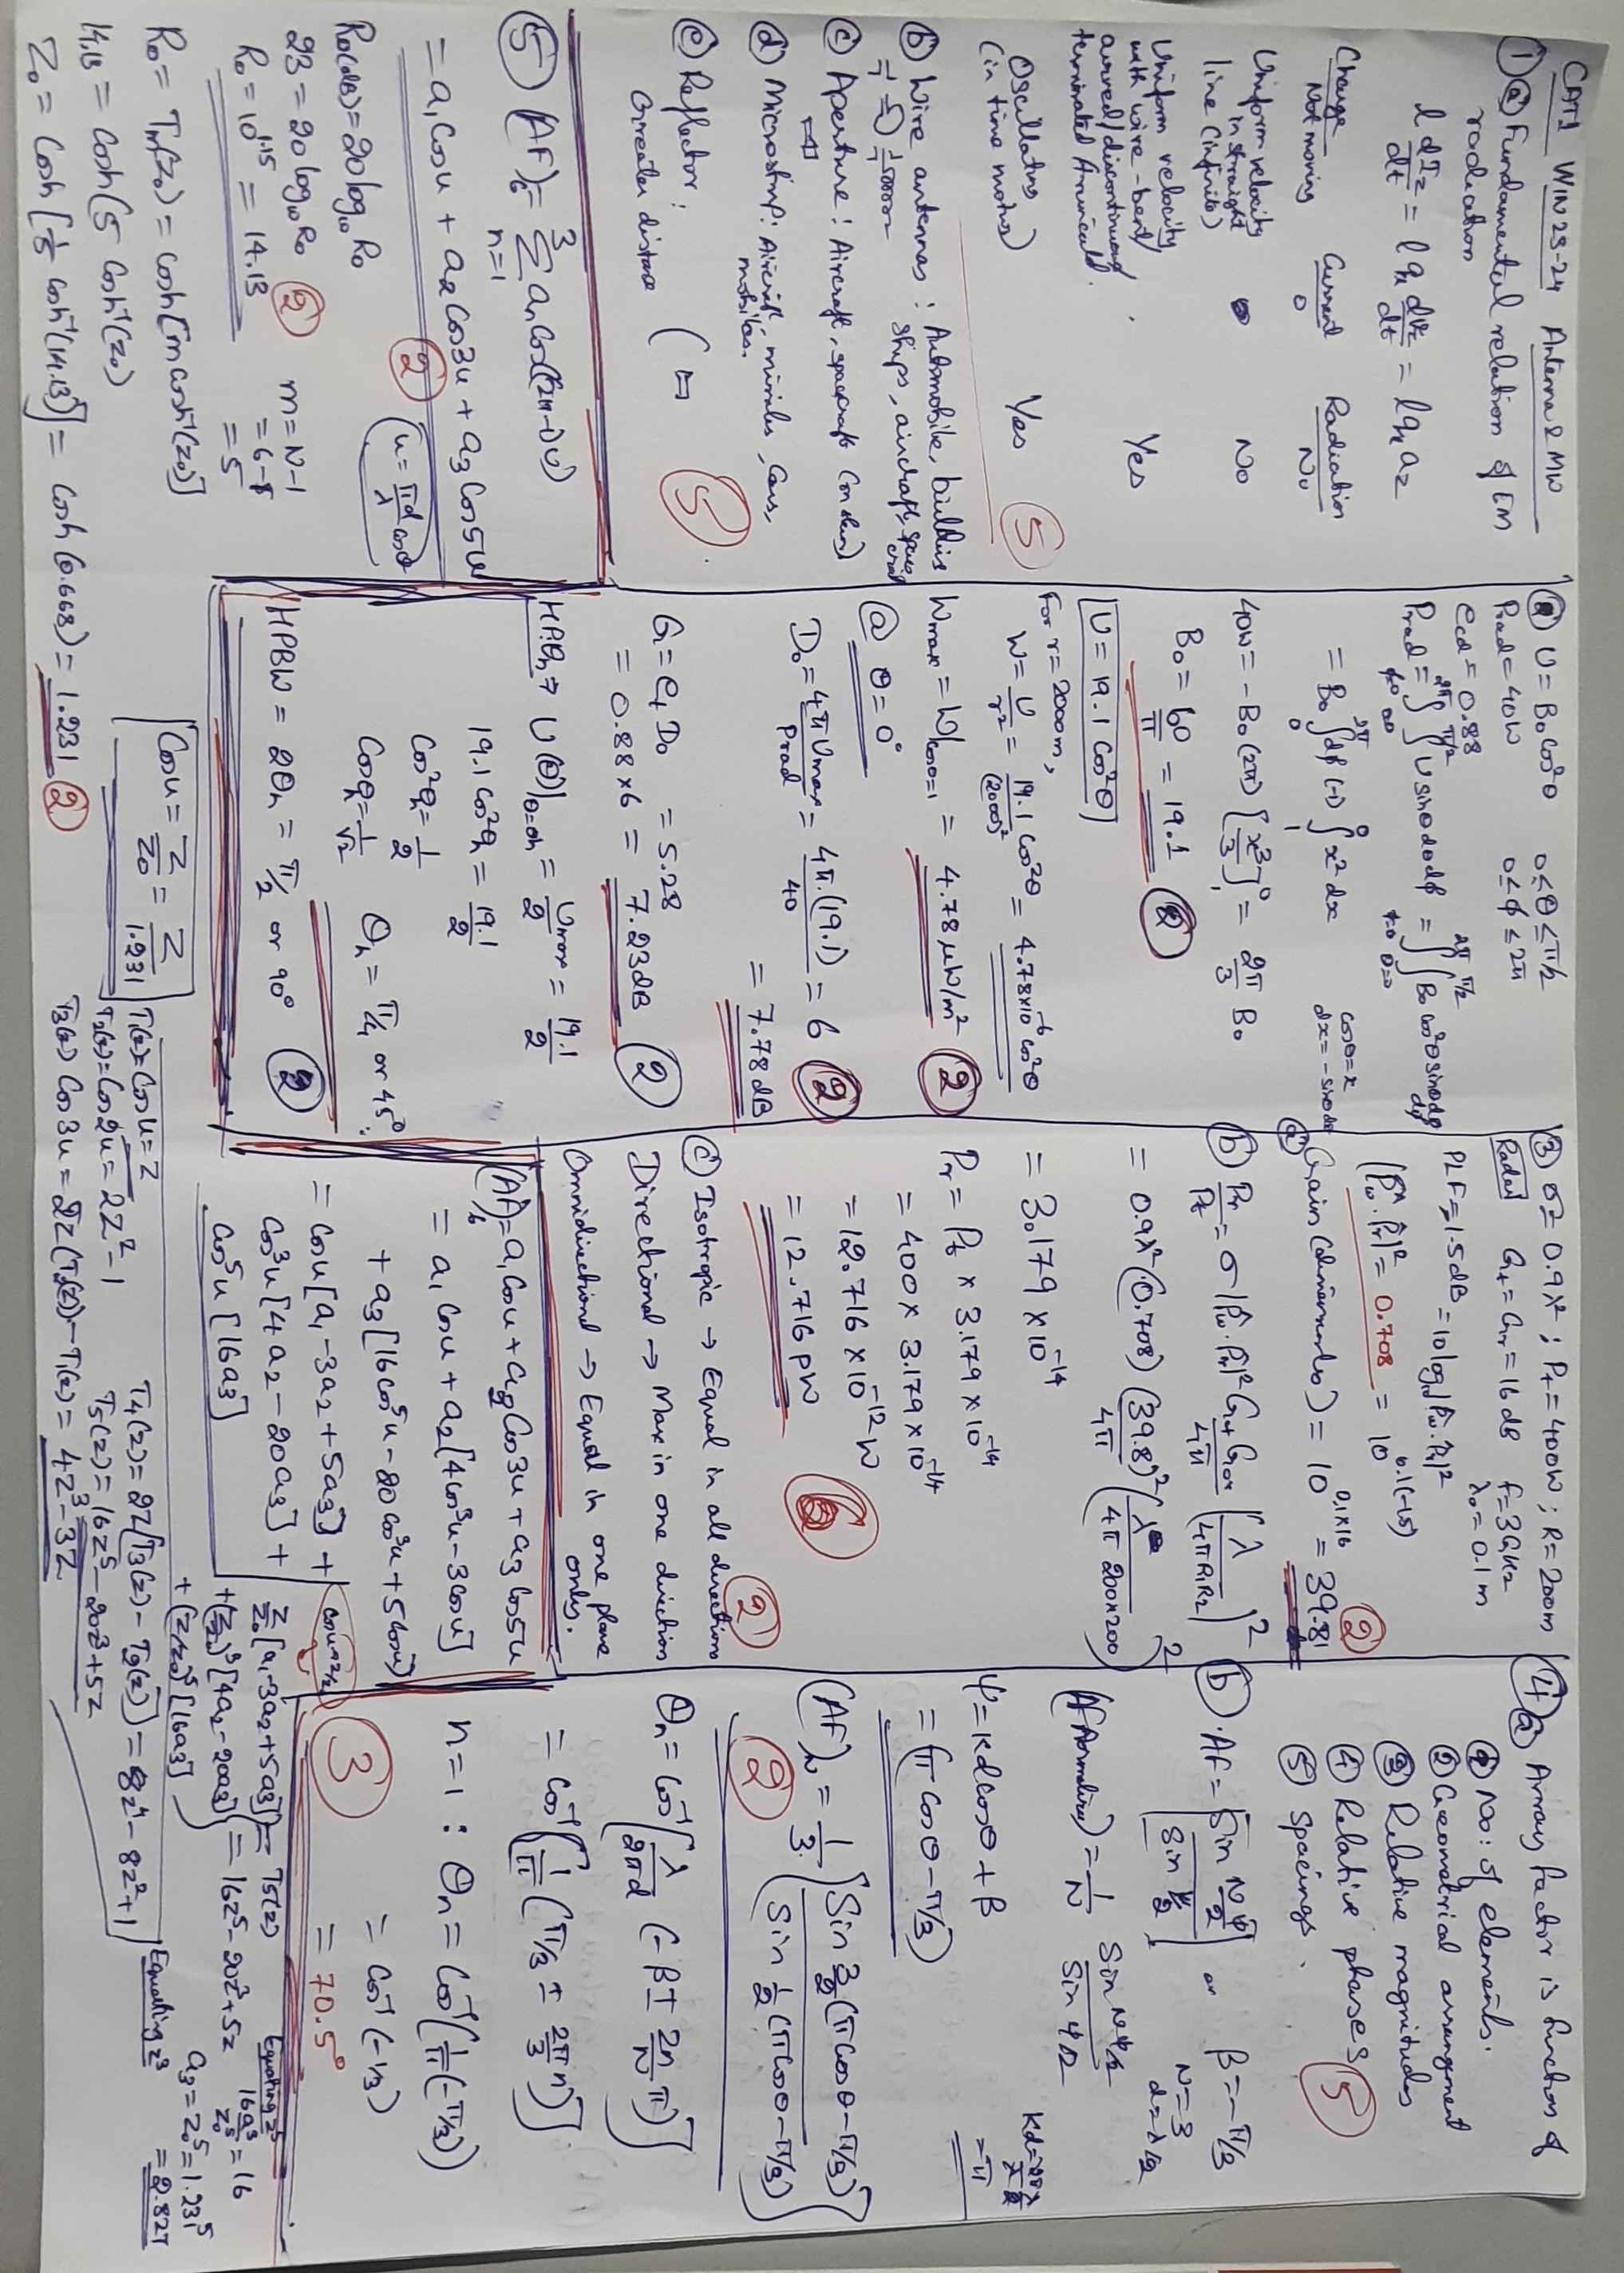 CAT1 WIN 23-24 Antenna & MW
① ⓐ Fundamental relation of EM
radiation
l dIz/dt = l qₗ dvz/dt = l qₗ az
Charge Current Radiation
Not moving 0 No
Uniform velocity
in straight No
line (infinite)
Uniform velocity
with wire-bent/ Yes
curved/discontinuous/
terminated/truncated.
Oscillating Yes ⑤
(in time motion)
ⓑ Wire antennas : Automobile, buildings
ships, aircraft, space craft
ⓒ Aperture : Aircraft, spacecraft (on skin)
ⓓ Microstrip : Aircraft, missiles, Cars,
mobiles.
⑤
ⓔ Reflector :
Greater distance
② U = B₀ cos²θ 0 ≤ θ ≤ π/2
Prad = 40W 0 ≤ ϕ ≤ 2π
ecd = 0.88
Prad = ∫ϕ=0^2π ∫θ=0^π/2 U sinθ dθ dϕ = ∫ϕ=0^2π ∫θ=0^π/2 B₀ cos²θ sinθ dθ dϕ
= B₀ ∫0^2π dϕ (-1) ∫1^0 x² dx cosθ = x
dx = -sinθ dθ
40W = -B₀ (2π) [x³/3]₁⁰ = 2π/3 B₀
B₀ = 60/π = 19.1 ②
U = 19.1 Cos²θ
For r = 2000m,
W = U/r² = 19.1 Cos²θ/(2000)² = 4.78×10⁻⁶ cos²θ
Wmax = W|cosθ=1 = 4.78 μW/m² ②
@ θ = 0°
D₀ = 4π Umax/Prad = 4π.(19.1)/40 = 6 ②
= 7.78 dB
G = et D₀ = 5.28
= 0.88×6 = 7.23dB ②
HP: θh ⇒ U(θ)|θ=θh = Umax/2 = 19.1/2
19.1 Cos²θh = 19.1/2
Cos²θh = 1/2
Cosθh = 1/√2 θh = π/4 or 45°
HPBW = 2θh = π/2 or 90° ②
③ σ = 0.9λ² ; Pt = 400W ; R = 200m
Radar Gt = Gr = 16 dB f = 3GHz
λ₀ = 0.1 m
PLF = -1.5dB = 10 log₁₀|P̂w.P̂r|²
|P̂w.P̂r|² = 0.708 = 10^0.1(-1.5)
②
ⓐ Gain (dimensionless) = 10^0.1×16 = 39.81
ⓑ Pr/Pt = σ|P̂w.P̂r|² Gt Gor/4π [λ/4πR₁R₂]²
= 0.9λ² (0.708) (39.8)²/4π (λ/4π 200×200)²
= 3.179 × 10⁻¹⁴
Pr = Pt × 3.179 × 10⁻¹⁴
= 400 × 3.179 × 10⁻¹⁴
= 12.716 × 10⁻¹² W
= 12.716 pW ⑥
②
ⓒ Isotropic → Equal in all directions
Directional → Max in one direction
Omnidirectional → Equal in one plane
only.
④ ⓐ Array factor is function of
① No: of elements.
② Geometrical arrangement
③ Relative magnitudes
④ Relative phases ⑤
⑤ spacings.
ⓑ AF = [Sin Nψ/2 / Sin ψ/2] or β = -π/3
N = 3
d = λ/2
(AF = 1/N Sin Nψ/2 / Sin ψ/2
Kd = 2π/λ λ/2
= π
ψ = Kd cosθ + β
= (π Cosθ - π/3)
(AF)N = 1/3 [Sin 3/2 (π Cosθ - π/3) / Sin 1/2 (π Cosθ - π/3)]
②
θn = Cos⁻¹[λ/2πd (-β ± 2n/N π)]
= Cos⁻¹[1/π (π/3 ± 2π/3 n)]
n = 1 : θn = Cos⁻¹(1/π (-π/3))
= Cos⁻¹(-1/3)
③ = 70.5°
⑤ (AF)₆ = Σ n=1 3 an Cos((2n-1)u)
= a₁ Cosu + a₂ Cos3u + a₃ Cos5u
② u = πd/λ cosθ
R₀(dB) = 20 log₁₀ R₀
23 = 20 log₁₀ R₀ ② m = N-1
R₀ = 10^1.15 = 14.13 = 6-1
= 5
R₀ = Tm(Z₀) = cosh[m cosh⁻¹(Z₀)]
14.13 = Cosh(5 Cosh⁻¹(Z₀)
Z₀ = Cosh[1/5 Cosh⁻¹(14.13)] = Cosh(0.668) = 1.231 ②
Cosu = Z/Z₀ = Z/1.231
T₁(z) = Cosu = Z
T₂(z) = Cos2u = 2Z² - 1
T₃(z) Cos3u = 2Z(T₂(Z)) - T₁(z) = 4Z³ - 3Z
T₄(z) = 2Z[T₃(z) - T₂(z)] = 8Z⁴ - 8Z² + 1
T₅(z) = 16Z⁵ - 20Z³ + 5Z
(AF)₆ = a₁ Cosu + a₂ Cos3u + a₃ Cos5u
= a₁ Cosu + a₂ [4cos³u - 3cosu]
+ a₃ [16cos⁵u - 20cos³u + 5cosu]
= cosu [a₁ - 3a₂ + 5a₃] +
cos³u [4a₂ - 20a₃] +
cos⁵u [16a₃]
cosu = z/z₀
z/z₀ [a₁ - 3a₂ + 5a₃] = T₅(z)
+ (z/z₀)³ [4a₂ - 20a₃] = 16z⁵ - 20z³ + 5z
+ (z/z₀)⁵ [16a₃]
Equating z⁵
16a³/z₀⁵ = 16
a₃ = z₀⁵ = 1.231⁵
= 2.827
Equating z³